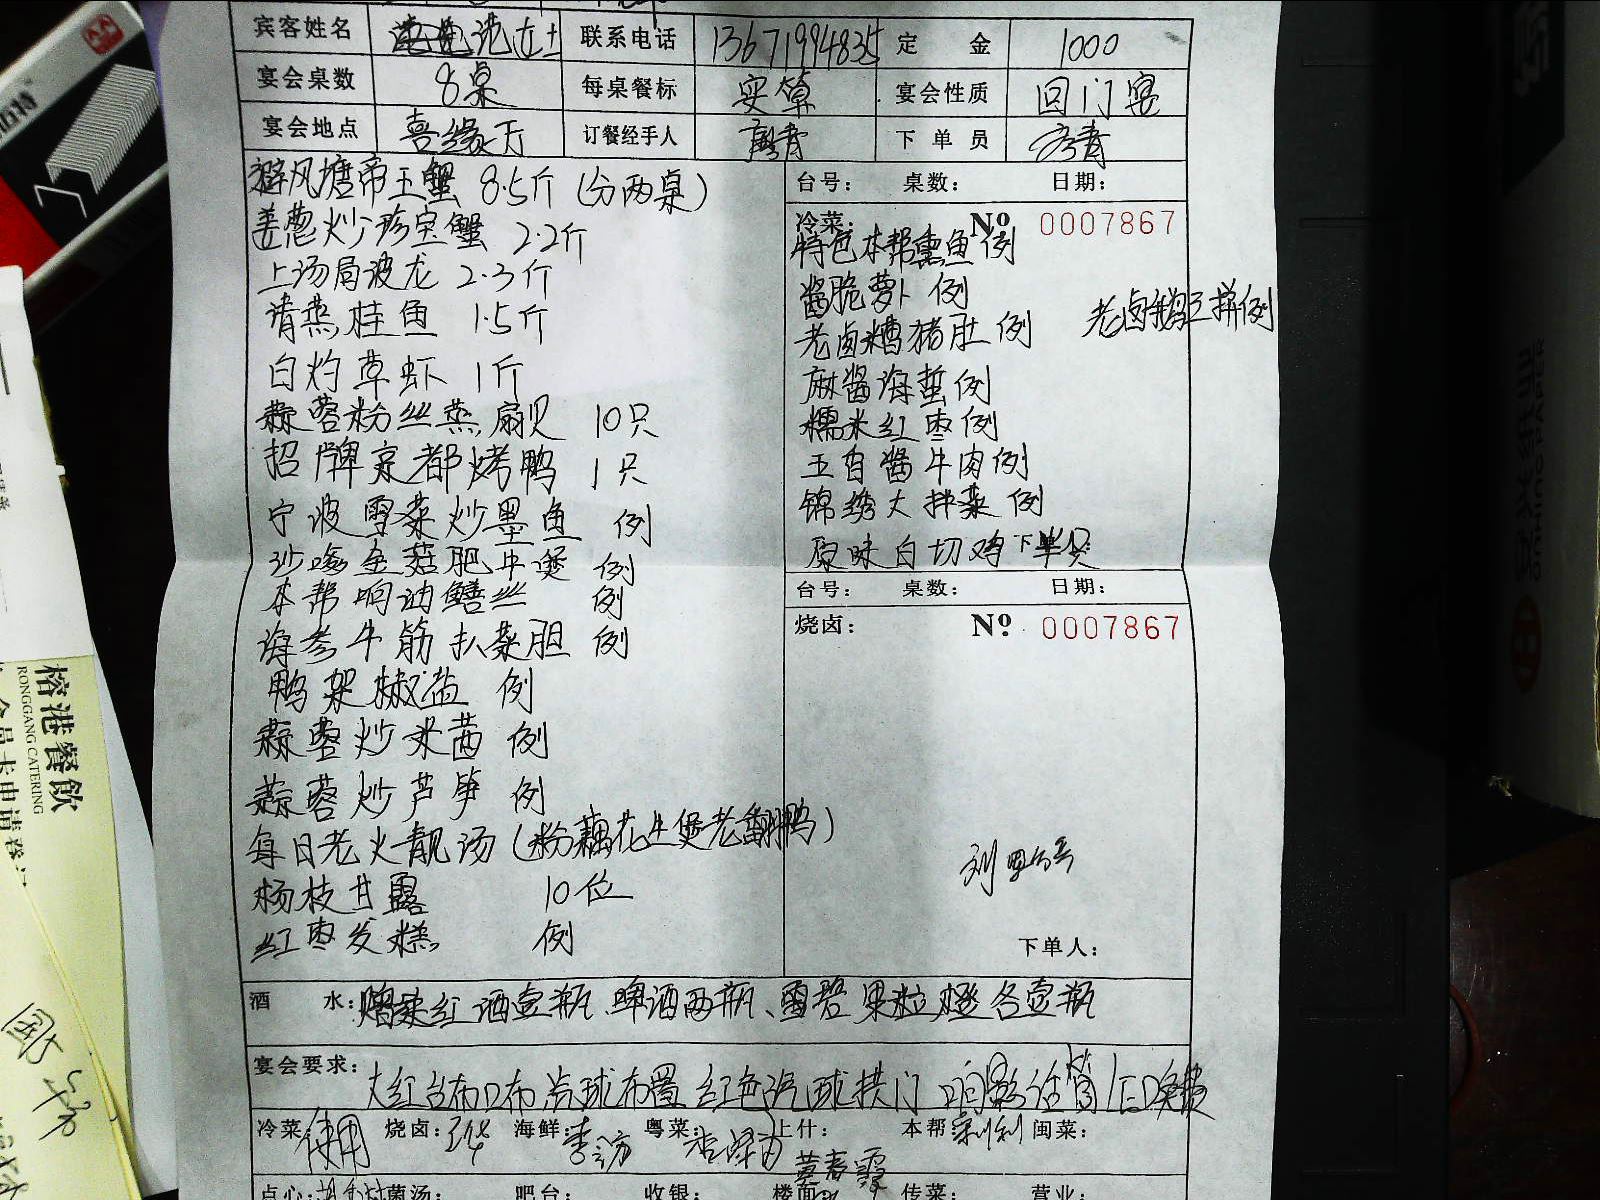 宾客姓名 女士 联系电话 13671994835 定金 1000
宴会桌数 8桌 每桌餐标 实单 宴会性质 回门宴
宴会地点 喜缘厅 订餐经手人 下单员
避风塘帝王蟹 8.5斤 (分两桌)
姜葱炒珍宝蟹 2.2斤
上汤局波龙 2.3斤
清蒸桂鱼 1.5斤
白灼草虾 1斤
蒜蓉粉丝蒸扇贝 10只
招牌京都烤鸭 1只
宁波雪菜炒墨鱼 例
沙嗲金菇肥牛煲 例
本帮响油鳝丝 例
海参牛筋扒菜胆 例
鸭架椒盐 例
蒜蓉炒米茜 例
蒜蓉炒芦笋 例
每日老火靓汤 (粉藕花生煲老翻鸭)
杨枝甘露 10位
红枣发糕 例
台号: 桌数: 日期:
冷菜: Nº 0007867
特色本帮熏鱼 例
酱脆萝卜 例
老卤糟猪肚 例 老卤鹅三拼例
麻酱海蜇 例
糯米红枣 例
五香酱牛肉 例
锦绣大拌菜 例
原味白切鸡 下单只
台号: 桌数: 日期:
烧卤: Nº 0007867
下单人:
酒水: 赠送红酒壹瓶、啤酒两瓶、雪碧果粒橙各壹瓶
宴会要求: 大红台布口布 气球布置 红色气球拱门 LED免费
冷菜: 烧卤: 海鲜: 粤菜: 上什: 本帮 闽菜:
黄春霞
点心: 菌汤: 肥台: 收银: 楼面 传菜: 营业:
榕港餐飲
RONGGANG CATERING